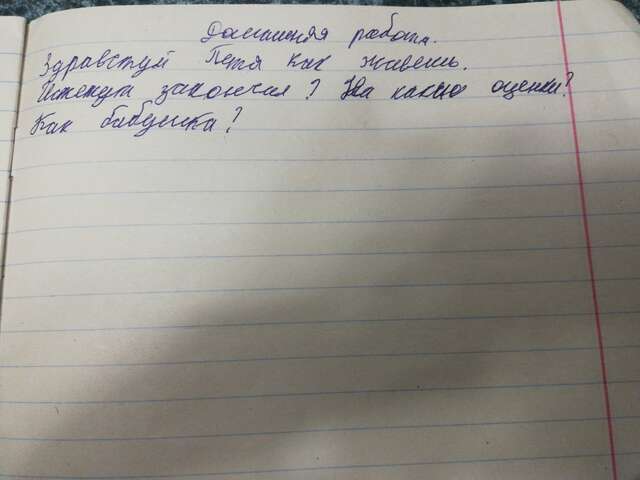 Домашняя работа.
Здравствуй Петя как живешь.
закончил? На какие оценки?
Как бабушка?